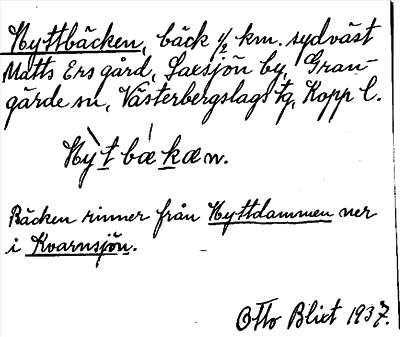 Nyttbäcken, bäck 1/2 km. sydväst
Matts Ers gård, Saxsjön by, Gran-
gärde sn, Västerbergslags tg, Kopp l.
Nỳt bæ kæn.
Bäcken rinner från Nyttdammen ner
i Kvarnsjön.
Otto Blixt 1937.